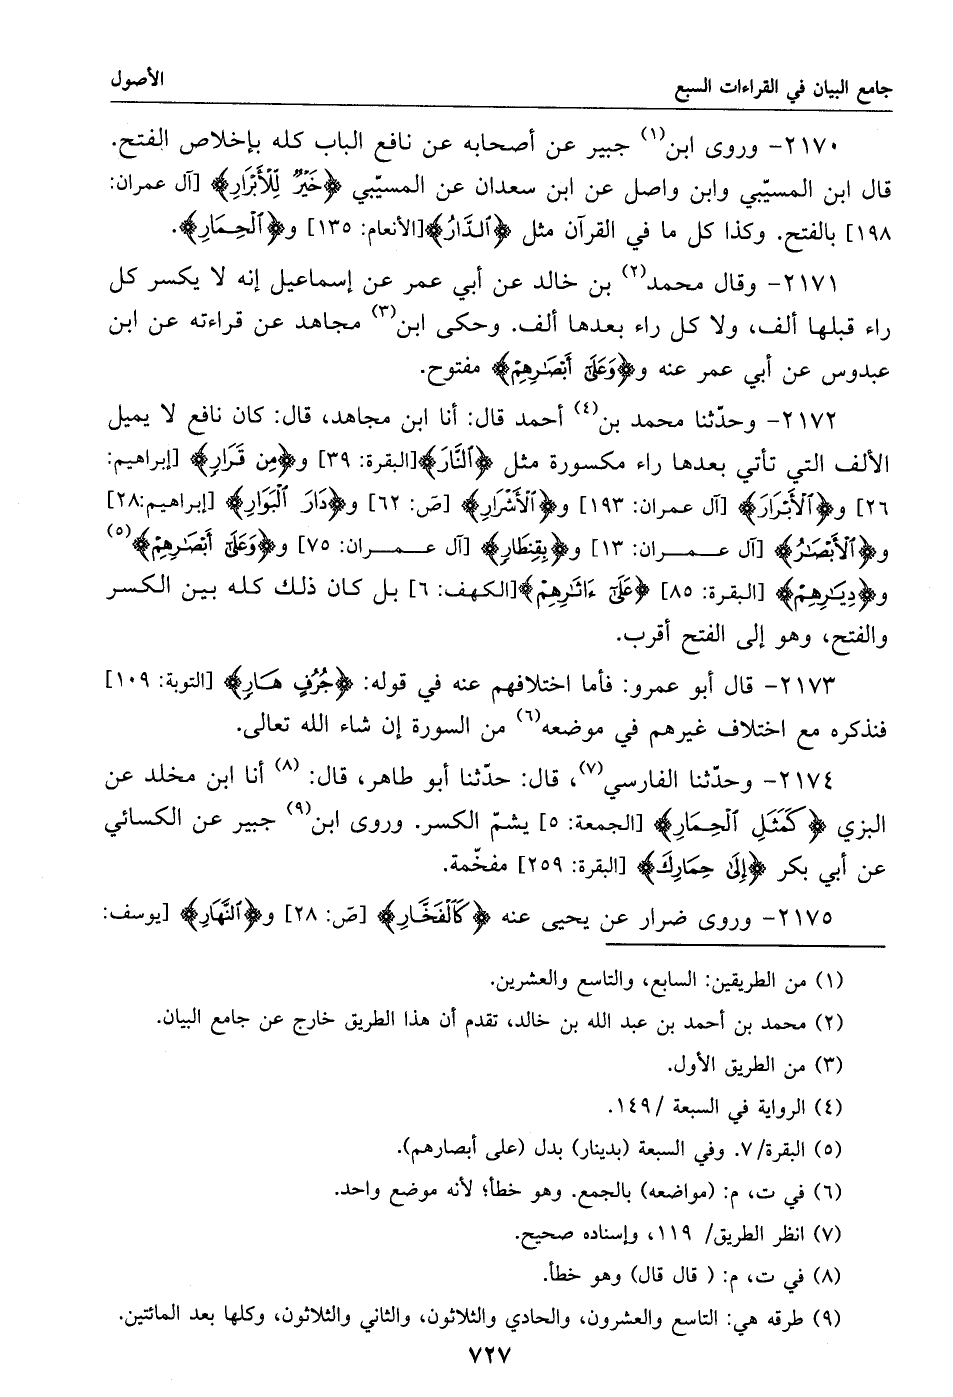 جامع البيان في القراءات السبع
الأصول
٢١٧٠- وروى ابن(١) جبير عن أصحابه عن نافع الباب كله بإخلاص الفتح.
قال ابن المسيّبي وابن واصل عن ابن سعدان عن المسيّبي ﴿خَيْرٌ لِّلْأَبْرَارِ﴾ [آل عمران:
١٩٨] بالفتح. وكذا كل ما في القرآن مثل ﴿ٱلدَّارُ﴾[الأنعام: ١٣٥] و﴿ٱلْحِمَارِ﴾.
٢١٧١- وقال محمد(٢) بن خالد عن أبي عمر عن إسماعيل إنه لا يكسر كل
راء قبلها ألف، ولا كل راء بعدها ألف. وحكى ابن(٣) مجاهد عن قراءته عن ابن
عبدوس عن أبي عمر عنه و﴿وَعَلَىٰٓ أَبْصَٰرِهِمْ﴾ مفتوح.
٢١٧٢- وحدّثنا محمد بن(٤) أحمد قال: أنا ابن مجاهد، قال: كان نافع لا يميل
الألف التي تأتي بعدها راء مكسورة مثل ﴿ٱلنَّارَ﴾[البقرة: ٣٩] و﴿مِن قَرَارٍ﴾ [إبراهيم:
٢٦] و﴿ٱلْأَبْرَارَ﴾ [آل عمران: ١٩٣] و﴿ٱلْأَشْرَارِ﴾ [صَ: ٦٢] و﴿دَارَ ٱلْبَوَارِ﴾ [إبراهيم:٢٨]
و﴿ٱلْأَبْصَٰرُ﴾ [آل عـمـران: ١٣] و﴿بِقِنطَارٍ﴾ [آل عـمـران: ٧٥] و﴿وَعَلَىٰٓ أَبْصَٰرِهِمْ﴾(٥)
و﴿دِيَٰرِهِمْ﴾ [البقرة: ٨٥] ﴿عَلَىٰٓ ءَاثَٰرِهِمْ﴾[الكهف: ٦] بل كان ذلك كله بين الكسر
والفتح، وهو إلى الفتح أقرب.
٢١٧٣- قال أبو عمرو: فأما اختلافهم عنه في قوله: ﴿جُرُفٍ هَارٍ﴾ [التوبة: ١٠٩]
فنذكره مع اختلاف غيرهم في موضعه(٦) من السورة إن شاء الله تعالى.
٢١٧٤- وحدّثنا الفارسي(٧)، قال: حدّثنا أبو طاهر، قال: (٨) أنا ابن مخلد عن
البزي ﴿كَمَثَلِ ٱلْحِمَارِ﴾ [الجمعة: ٥] يشمّ الكسر. وروى ابن(٩) جبير عن الكسائي
عن أبي بكر ﴿إِلَىٰ حِمَارِكَ﴾ [البقرة: ٢٥٩] مفخّمة.
٢١٧٥- وروى ضرار عن يحيى عنه ﴿كَٱلْفَخَّارِ﴾ [صَ: ٢٨] و﴿ٱلنَّهَارِ﴾ [يوسف:
(١) من الطريقين: السابع، والتاسع والعشرين.
(٢) محمد بن أحمد بن عبد الله بن خالد، تقدم أن هذا الطريق خارج عن جامع البيان.
(٣) من الطريق الأول.
(٤) الرواية في السبعة /١٤٩.
(٥) البقرة/ ٧. وفي السبعة (بدينار) بدل (على أبصارهم).
(٦) في ت، م: (مواضعه) بالجمع. وهو خطأ؛ لأنه موضع واحد.
(٧) انظر الطريق/ ١١٩، وإسناده صحيح.
(٨) في ت، م: ( قال قال) وهو خطأ.
(٩) طرقه هي: التاسع والعشرون، والحادي والثلاثون، والثاني والثلاثون، وكلها بعد المائتين.
٧٢٧